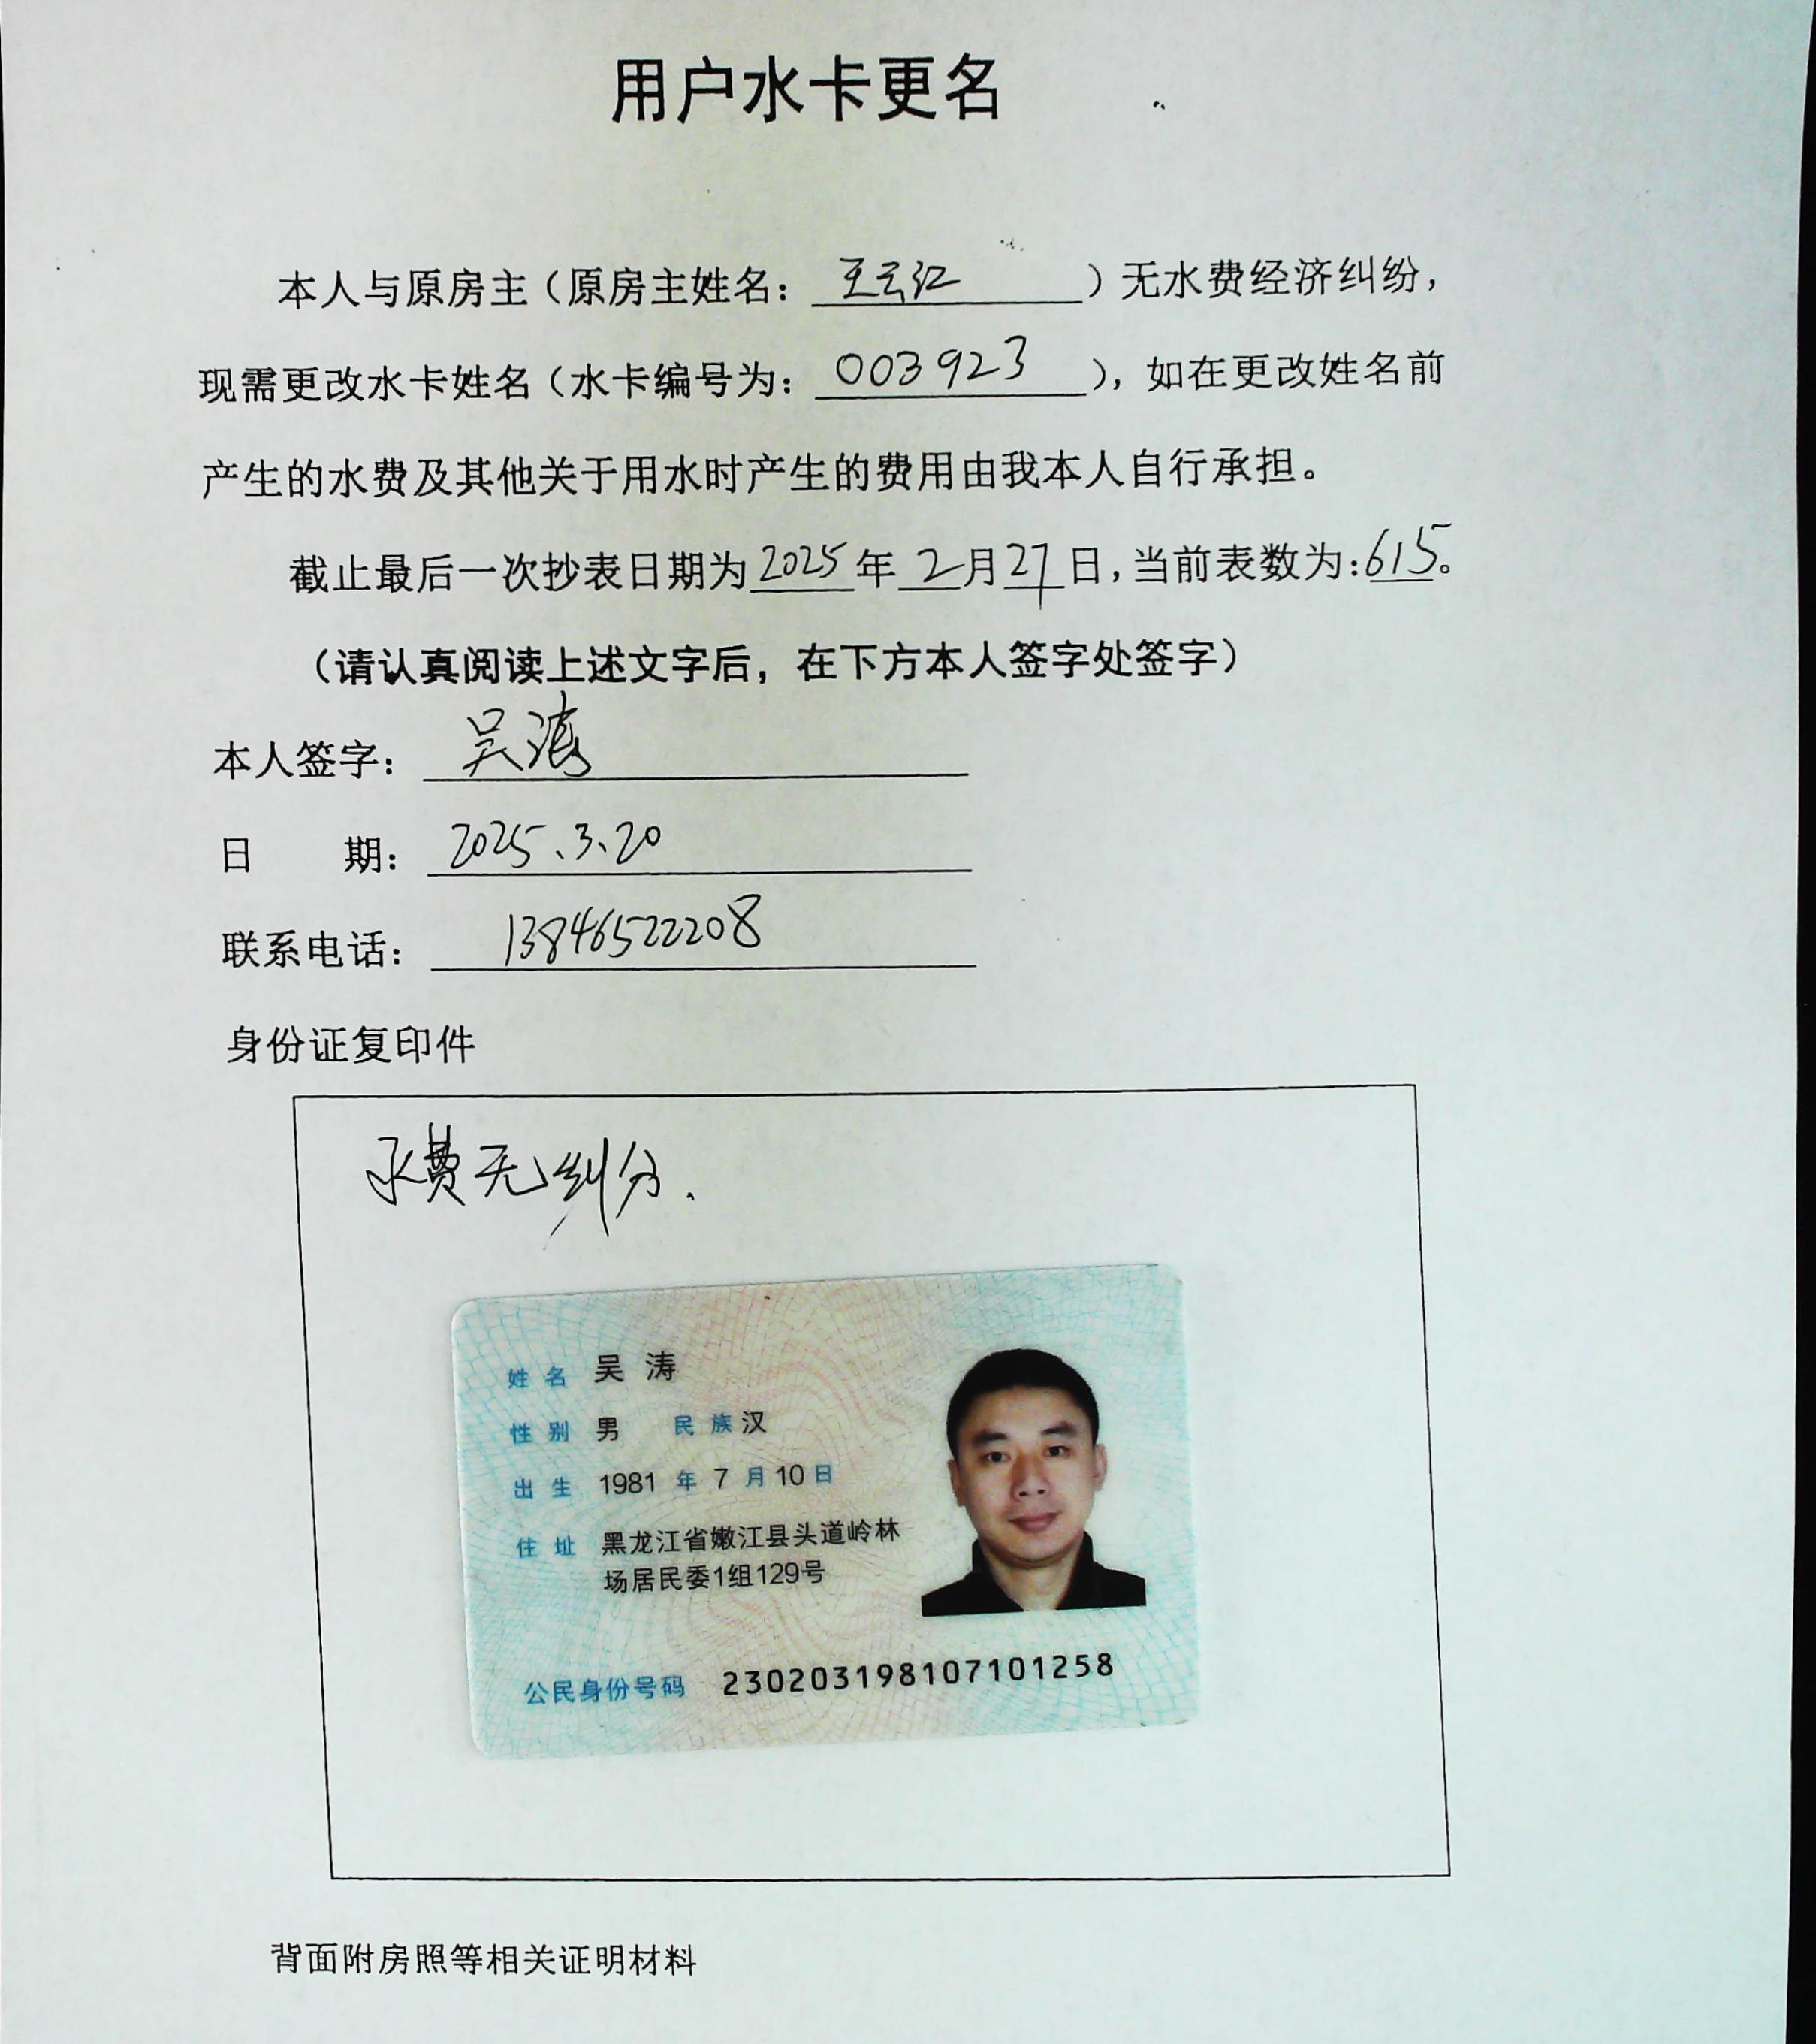 用户水卡更名
本人与原房主（原房主姓名：王云江）无水费经济纠纷，
现需更改水卡姓名（水卡编号为：003923），如在更改姓名前
产生的水费及其他关于用水时产生的费用由我本人自行承担。
截止最后一次抄表日期为2025年2月27日，当前表数为：615。
（请认真阅读上述文字后，在下方本人签字处签字）
本人签字：吴涛
日 期：2025.3.20
联系电话：13846522208
身份证复印件
水费无纠分.
姓名 吴涛
性别 男 民族 汉
出生 1981年7月10日
住址 黑龙江省嫩江县头道岭林
场居民委1组129号
公民身份号码 230203198107101258
背面附房照等相关证明材料